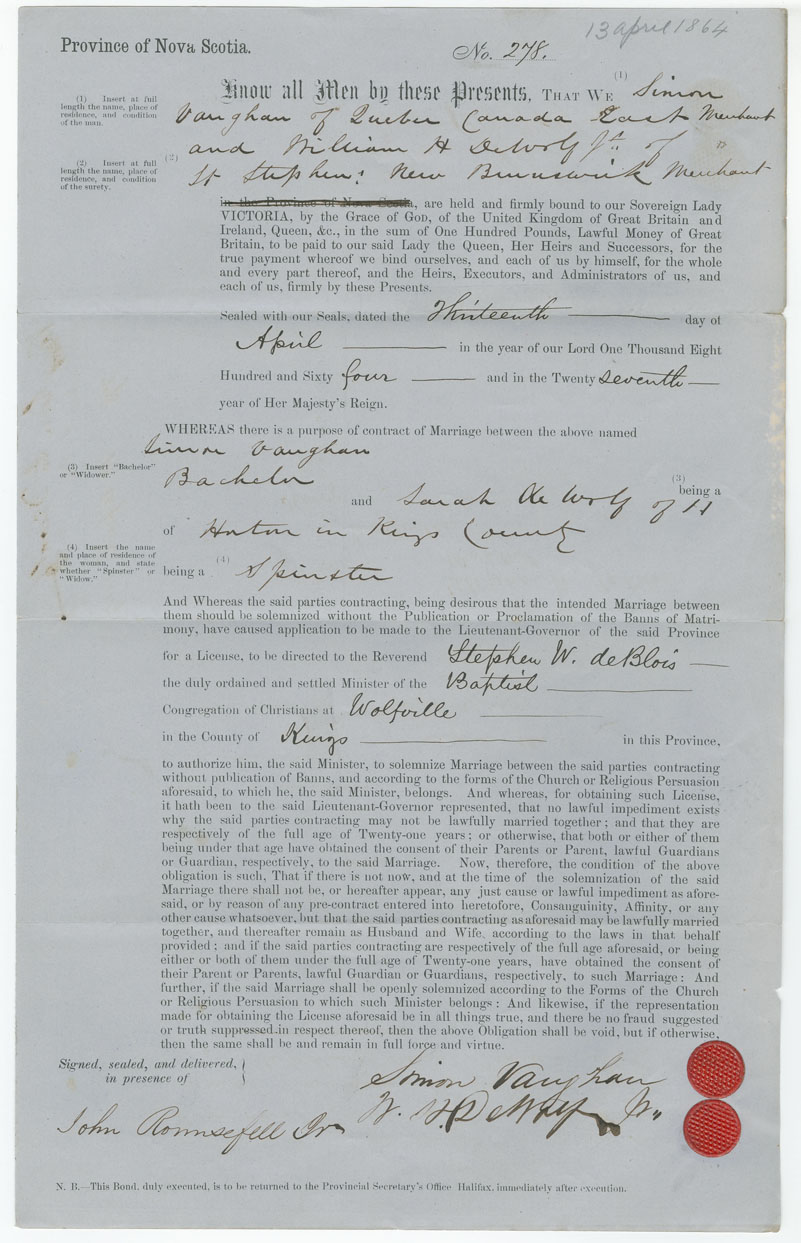 13 april 1864
Province of Nova Scotia.
No. 278.
Know all Men by these Presents, THAT WE (1) Simon
(1) Insert at full
length the name, place of
residence, and condition
of the man.
Vaughan of Quebec Canada East Merchant
and William H DeWolf Jr. of
(2) Insert at full
length the name, place of
residence, and condition
of the surety.
(2)
St Stephens New Brunswick Merchant
in the Province of Nova Scotia, are held and firmly bound to our Sovereign Lady
VICTORIA, by the Grace of GOD, of the United Kingdom of Great Britain and
Ireland, Queen, &c., in the sum of One Hundred Pounds, Lawful Money of Great
Britain, to be paid to our said Lady the Queen, Her Heirs and Successors, for the
true payment whereof we bind ourselves, and each of us by himself, for the whole
and every part thereof, and the Heirs, Executors, and Administrators of us, and
each of us, firmly by these Presents.
Sealed with our Seals, dated the Thirteenth day of
April in the year of our Lord One Thousand Eight
Hundred and Sixty four and in the Twenty seventh
year of Her Majesty's Reign.
WHEREAS there is a purpose of contract of Marriage between the above named
Simon Vaughan
(3) Insert "Bachelor"
or "Widower."
(3)
being a
Bachelor
and Sarah DeWolf of
of Horton in Kings County
(4) Insert the name
and place of residence of
the woman, and state
whether "Spinster" or
"Widow."
being a (4) Spinster
And Whereas the said parties contracting, being desirous that the intended Marriage between
them should be solemnized without the Publication or Proclamation of the Banns of Matri-
mony, have caused application to be made to the Lieutenant-Governor of the said Province
for a License, to be directed to the Reverend Stephen W. deBlois
the duly ordained and settled Minister of the Baptist
Congregation of Christians at Wolfville
in the County of Kings in this Province,
to authorize him, the said Minister, to solemnize Marriage between the said parties contracting
without publication of Banns, and according to the forms of the Church or Religious Persuasion
aforesaid, to which he, the said Minister, belongs. And whereas, for obtaining such License,
it hath been to the said Lieutenant-Governor represented, that no lawful impediment exists
why the said parties contracting may not be lawfully married together; and that they are
respectively of the full age of Twenty-one years; or otherwise, that both or either of them
being under that age have obtained the consent of their Parents or Parent, lawful Guardians
or Guardian, respectively, to the said Marriage. Now, therefore, the condition of the above
obligation is such, That if there is not now, and at the time of the solemnization of the said
Marriage there shall not be, or hereafter appear, any just cause or lawful impediment as afore-
said, or by reason of any pre-contract entered into heretofore, Consanguinity, Affinity, or any
other cause whatsoever, but that the said parties contracting as aforesaid may be lawfully married
together, and thereafter remain as Husband and Wife, according to the laws in that behalf
provided; and if the said parties contracting are respectively of the full age aforesaid, or being
either or both of them under the full age of Twenty-one years, have obtained the consent of
their Parent or Parents, lawful Guardian or Guardians, respectively, to such Marriage: And
further, if the said Marriage shall be openly solemnized according to the Forms of the Church
or Religious Persuasion to which such Minister belongs: And likewise, if the representation
made for obtaining the License aforesaid be in all things true, and there be no fraud suggested
or truth suppressed in respect thereof, then the above Obligation shall be void, but if otherwise,
then the same shall be and remain in full force and virtue.
Signed, sealed, and delivered,
in presence of
Simon Vaughan
W. H. DeWolf Jr.
John Rounsefell Jr
N. B.—This Bond, duly executed, is to be returned to the Provincial Secretary's Office Halifax, immediately after execution.